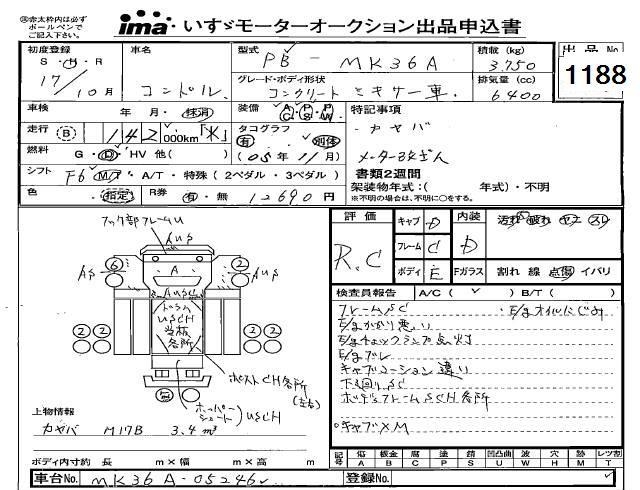 ㊟赤太枠内は必ず
ボールペンで
ご記入下さい。
ima いすゞモーターオークション出品申込書
初度登録 S・H・R 17/10月
車名 コンドル
型式 PB-MK36A
グレード・ボディ形状 コンクリートミキサー車
積載 (kg) 3,750
排気量 (cc) 6400
出品No. 1188
車検 年 月・抹消
装備 A/C P/S P/W
特記事項
カヤバ
メーター改ざん
走行 B 142,000km
タコグラフ 有・別体
燃料 G・D・HV 他( )
(05年11月)
書類2週間
架装物年式:( 年式)・不明
※不明の場合は、不明に○をする。
シフト F6 M/T・A/T・特殊(2ペダル・3ペダル)
色 指定
R券 有・無 12690円
フック部フレームU
AUS
評価 R.C
キャブ D
フレーム C
ボディ E
内装 D
Fガラス
汚れ 破れ ヤニ スレ
割れ 線 点傷 イバリ
検査員報告 A/C( ✓ ) B/T( )
フレームSC
・E/gオイルにじみ
E/gかかり悪い
E/gチェックランプ点灯
E/gブレ
キャブコーション違い
下回りSC
ボディフレームUSCH各所
○キャブ×M
AS 6 A 2 AS
AUSC
ドラム
USCH
当板
各所
2 2 2 2
ポストCH各所
(左右)
ホッパー
シュート
USCH
上物情報
カヤバ M17B 3.4m³
ボディ内寸約 長 m×幅 m×高 m
記号 傷 板金 腐 塗 錆 凹凸曲 波 穴 跡 レツ割
A B C P S U W H M T
車台No. MK36A-05246
登録No.